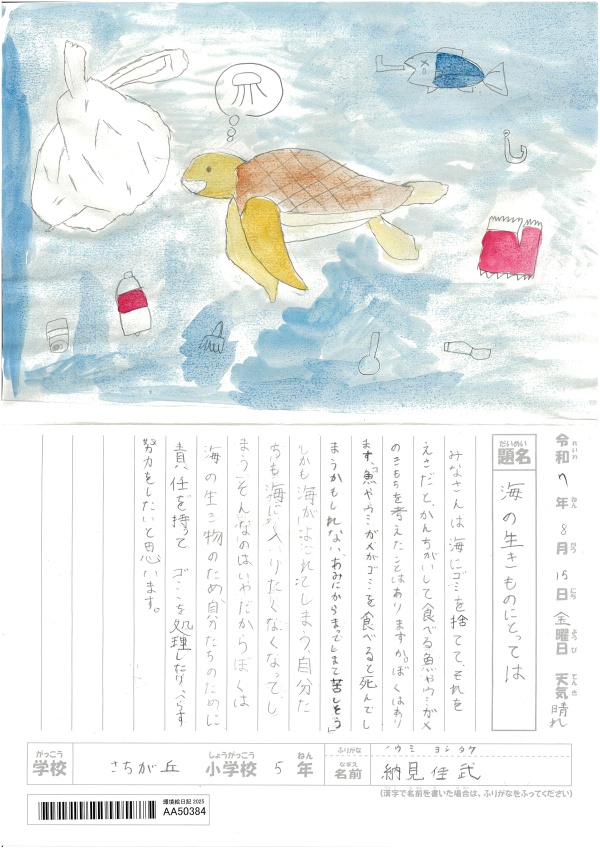 令和7年8月15日金曜日 天気晴れ
れいわ ねん がつ にち ようび てんき
だいめい
題名 海の生きものにとっては
みなさんは海にゴミを捨てて、それを
えさだと、かんちがいして食べる魚やウミガメ
のきもちを考えたことはありますか。ぼくはあり
ます。「魚やウミガメがゴミを食べると死んでし
まうかもしれない、あみにからまってしまて苦しそう」
しかも海がはこれてしまう、自分た
ちも海に入りたくなくなってし
まう。そんなのはいやだからぼくは
海の生き物のため、自分たちのために
責任を持って ゴミを処理したり、へらす
努力をしたいと思います。
がっこう しょうがっこう ねん ふりがな ノウミ ヨシタケ
学校 さちが丘 小学校 5年 なまえ 名前 納見佳武
(漢字で名前を書いた場合は、ふりがなをふってください)
環境絵日記 2025
AA50384